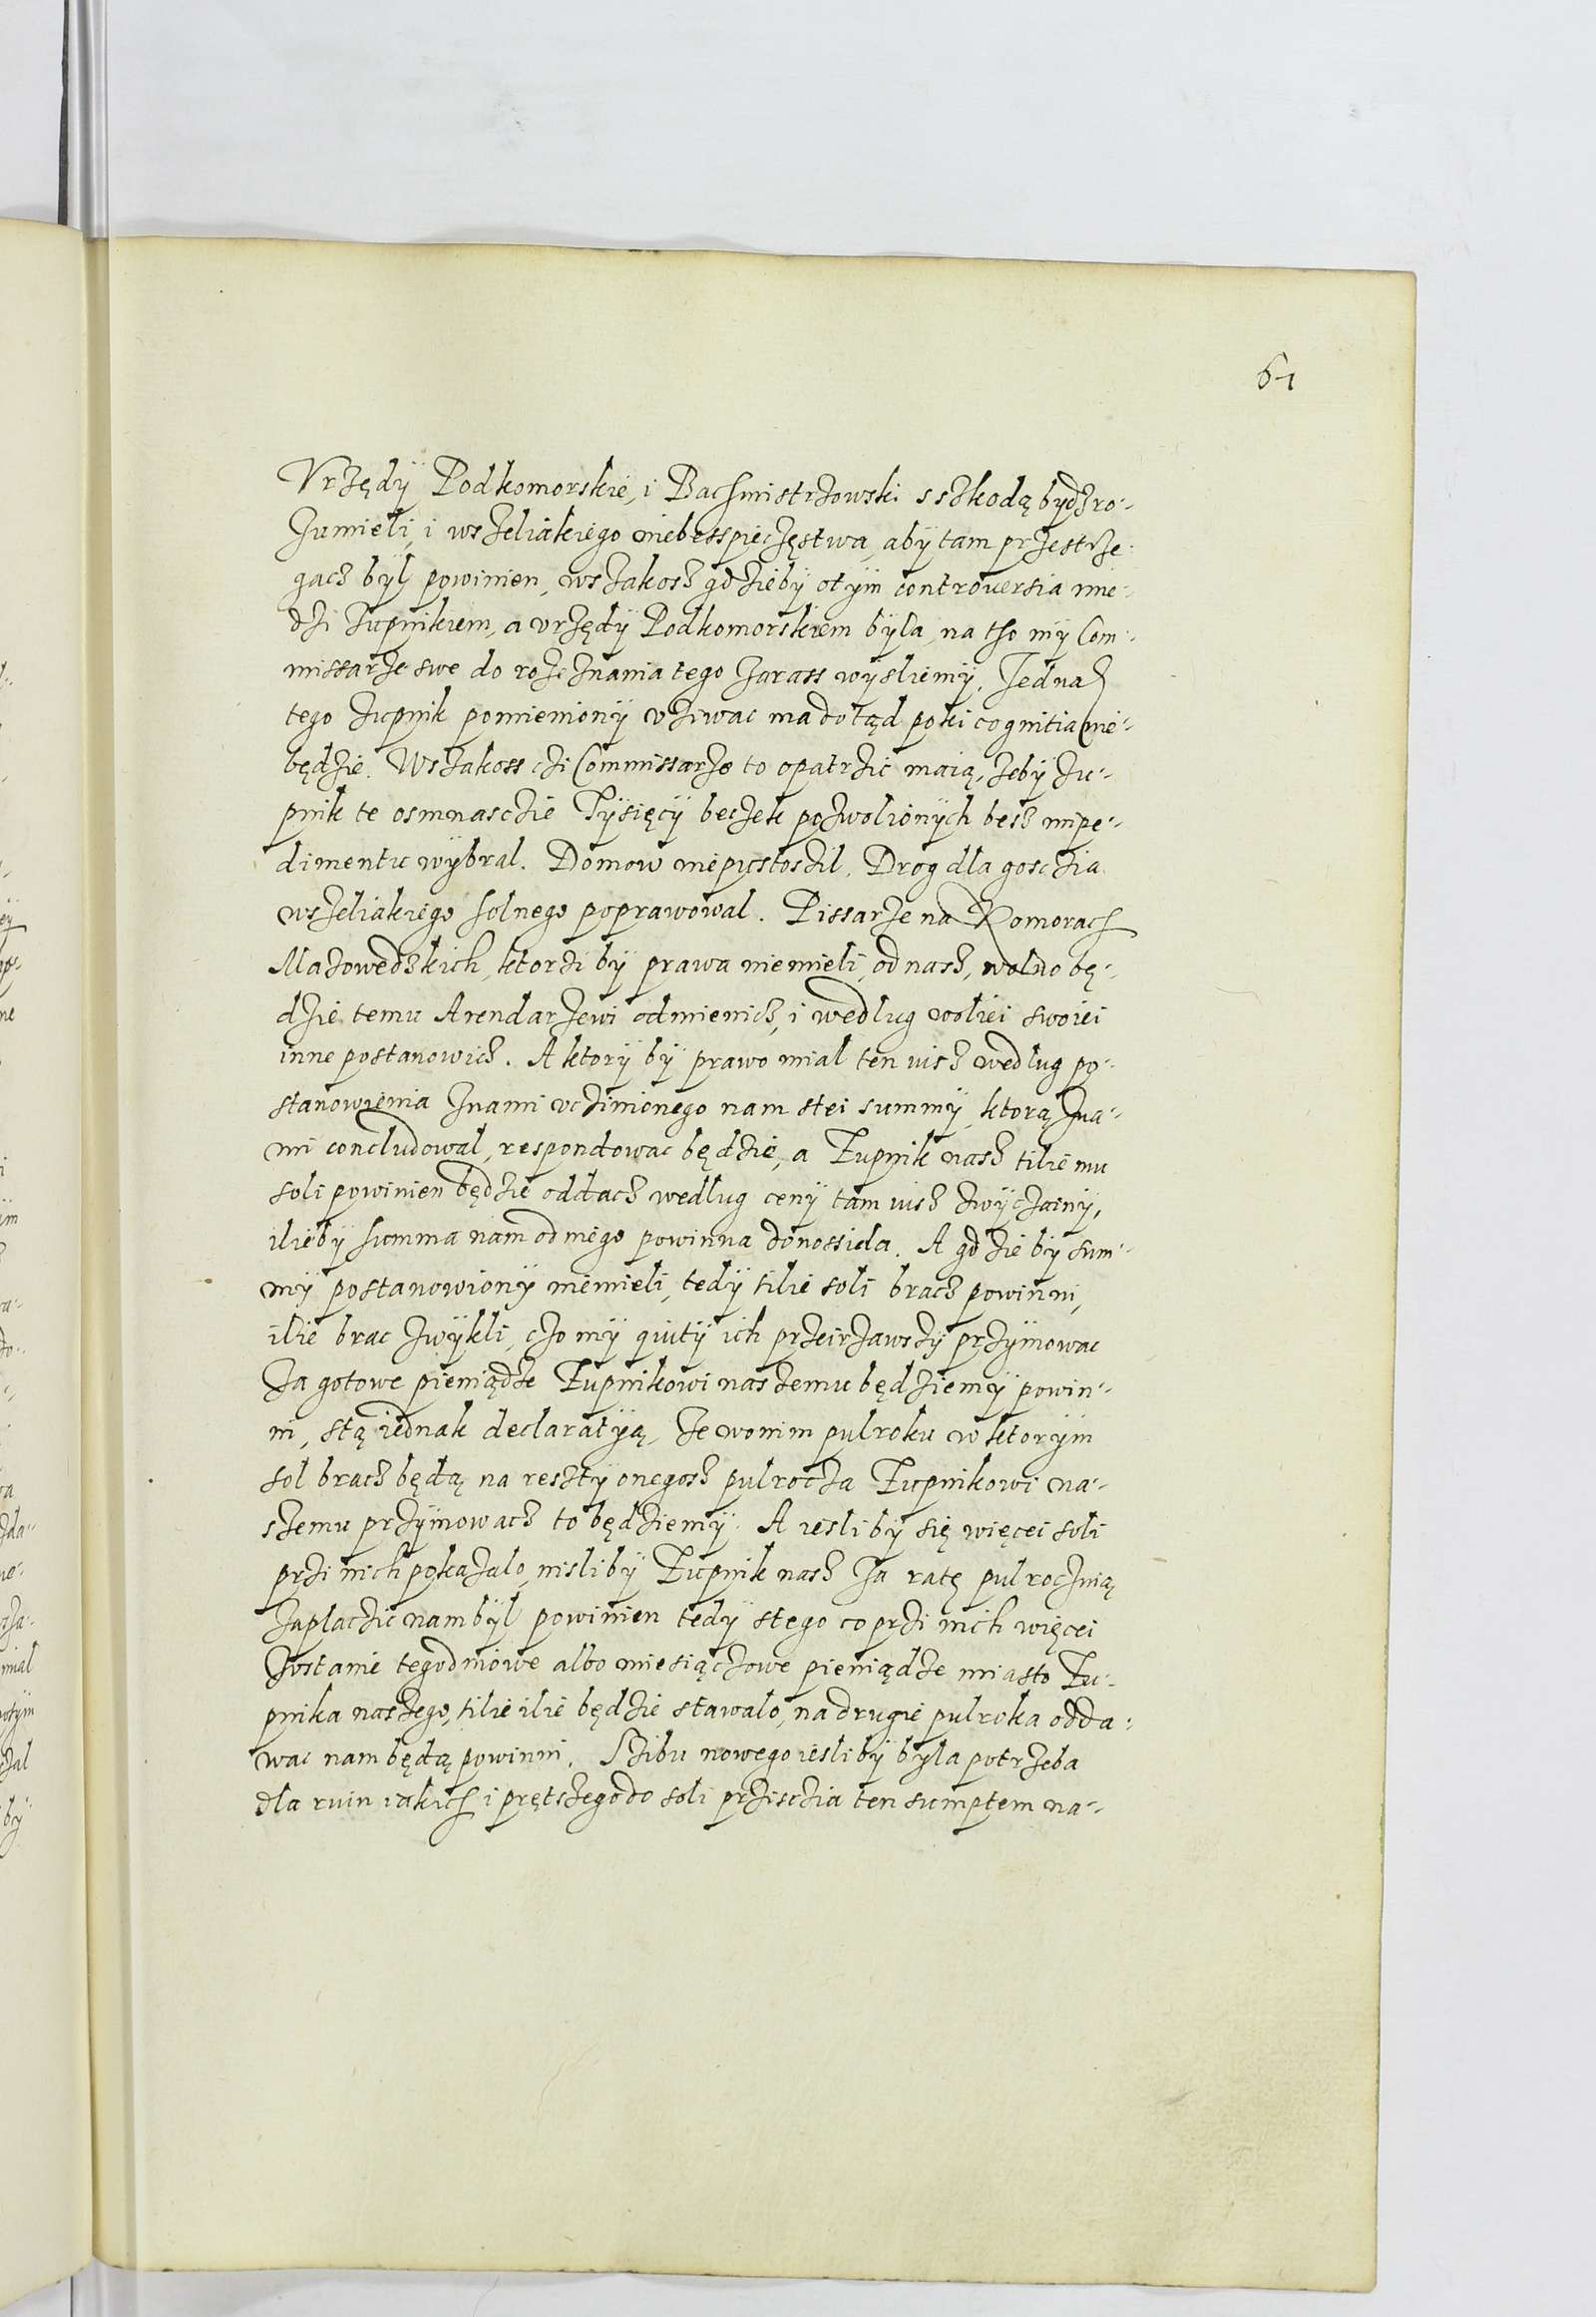 61
Vrzędÿ Podkomorskie, i Bachmistrzowski s szkodą bydz ro-
zumieli, i wszeliakiego niebesspieczęstwa, abÿ tam przestrze-
gacz bÿl powinien, wszakosz gdziebÿ otÿm controuersia mie-
dzi zupnikiem, a vrzędÿ Podkomorskiem bÿla, na tho mÿ Com-
missarze swe do rozeznania tego zarass wÿsliemÿ, Jednak
tego zupnik pomienionÿ vziwac ma dotąd poki cognitia nie-
będzie. Wszakoss czi Commissarze to opatrzic maią, zebÿ zu-
pnik te osmnasczie Tÿsięcÿ beczek pozwolionÿch besz mipe-
dimentu wÿbral. Domow niepustoszil. Drog dla gosczia
wszeliakiego solnego poprawowal. Pissarze na Komorach
Mazowedzkich, ktorzi bÿ prawa niemieli, od nasz, wolno bę-
dzie temu Arendarzewi odmienicz, i wedlug woliei swoiei
inne postanowicz. A ktorÿ bÿ prawo mial ten uisz wedlug po-
stanowienia znami vczinionego nam stei summÿ, ktorą zna-
mi concludowal, respondowac będzie, a Zupnik nasz tilie mu
soli powinien będzie oddacz wedlug cenÿ tam uisz zwÿczainÿ,
iliebÿ summa nam od niego powinna donossiela. A gdzie bÿ sum-
mÿ postanowionÿ niemieli, tedÿ tilie soli bracz powinni,
ilie brac zwÿkli, czo mÿ quitÿ ich przeirzawszÿ przÿmowac
za gotowe pieniądze Zupnikowi naszemu będziemÿ powin-
ni, stą iednak declaratÿą, ze wonim pulroku w ktorÿm
sol bracz będą na resztÿ onegosz pulrocza Zupnikowi na-
szemu przÿmowacz to będziemÿ. A iesli bÿ się więcei soli
przi nich pokazalo, nisli bÿ Zupnik nasz za ratę pulrocznią
zaplaczic nam bÿl powinien tedÿ stego co przi nich więcei
zostanie tegodniowe albo miesiączowe pieniądze miasto Zu-
pnika naszego, tilie ilie będzie stawalo, na drugie pulroka odda-
wac nam będą powinni. Szibu nowego iesli bÿ bÿla potrzeba
dla ruin iakich i prętszego do soli przisczia ten sumptem na-